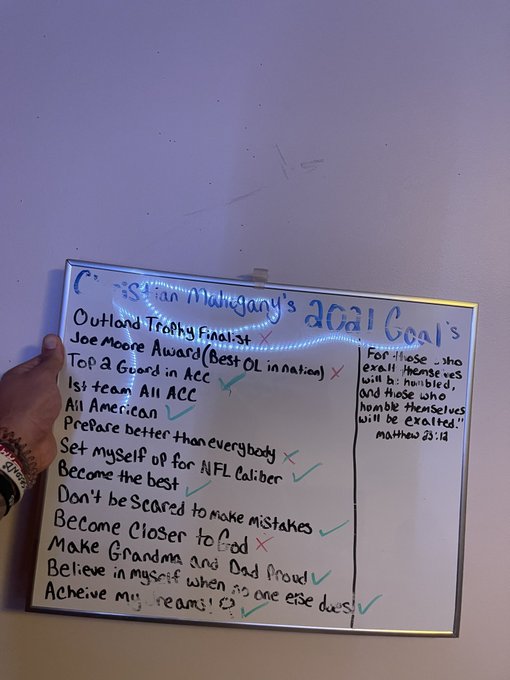 Christian Mahogany's 2021 Goal's
Outland Trophy Finalist ✗
Joe Moore Award (Best OL in nation) ✗
Top 2 Guard in Acc ✓
1st team All ACC
All American ✓
Prepare better than everybody ✓
Set myself up for NFL Caliber ✓
Become the best ✓
Don't be Scared to make mistakes ✓
Become Closer to God ✗
Make Grandma and Dad Proud ✓
Believe in myself when no one else does! ✓
Acheive my dreams! ✓
For those who
exalt themselves
will be humbled,
and those who
homble themselves
will be exalted."
matthew 23:12